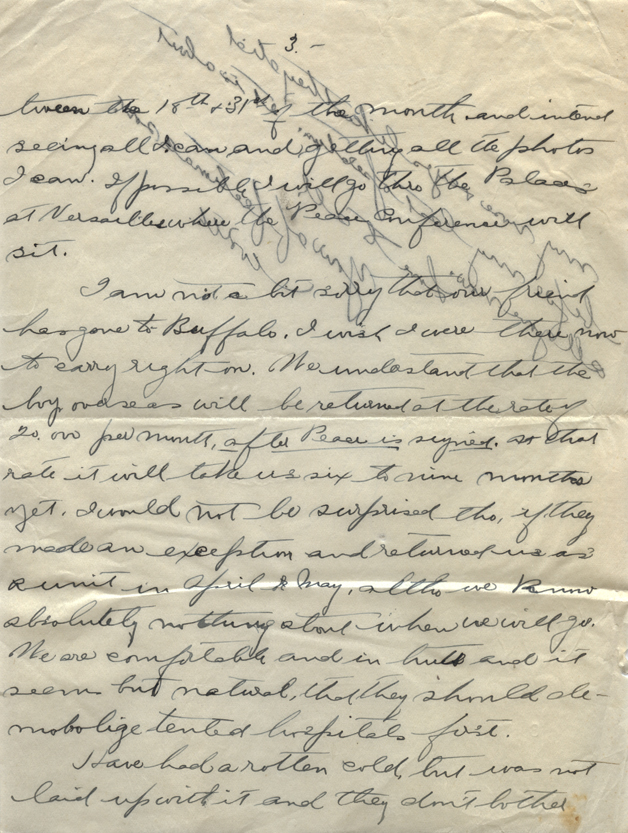 3.-
tween the 18th & 31st of the month and intend
seeing all I can and getting all the photos
I can. If possible I will go thro the Palace
at Versailles where the Peace Conference will
sit.
I am not a bit sorry that our friend
has gone to Buffalo. I wish I were there now
to carry right on. We understand that the
boys overseas will be returned at the rate of
20,000 per month, after Peace is signed. at that
rate it will take us six to nine months
yet. I would not be surprised tho, if they
made an exception and returned us as
a unit in April & May, altho we know
absolutely nothing about when we will go.
We are comfortable and in huts and it
seems but natural, that they should de-
mobolize tented hospitals first.
Have had a rotten cold, but was not
laid up with it and they don't bother